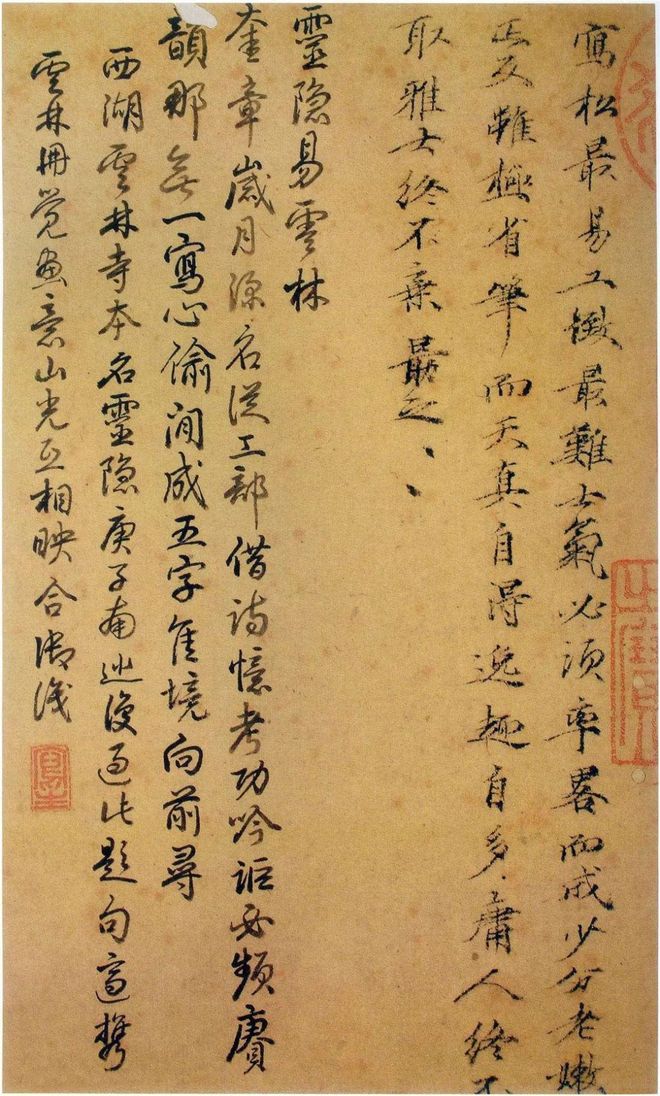 寫松最易工緻最難士氣必須率畧而成少分老嫩
正反雖極省筆而天真自得逸趣自多庸人終不
取雅士終不棄勗之、、
靈隐易雲林
奎章歲月深名從工部借詩憶考功吟詎必頻賡
韻那無一寫心偷閒成五字佳境向前尋
西湖雲林寺本名靈隐庚子南巡復過此題句適携
雲林冊覺畫意山光互相映合御識